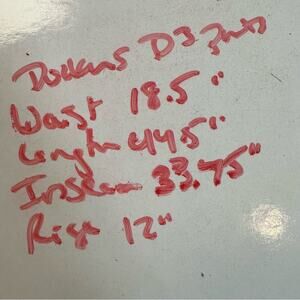 Dockers D3 Pants
Waist 18.5"
Length 44.5"
Inseam 33.75"
Rise 12"